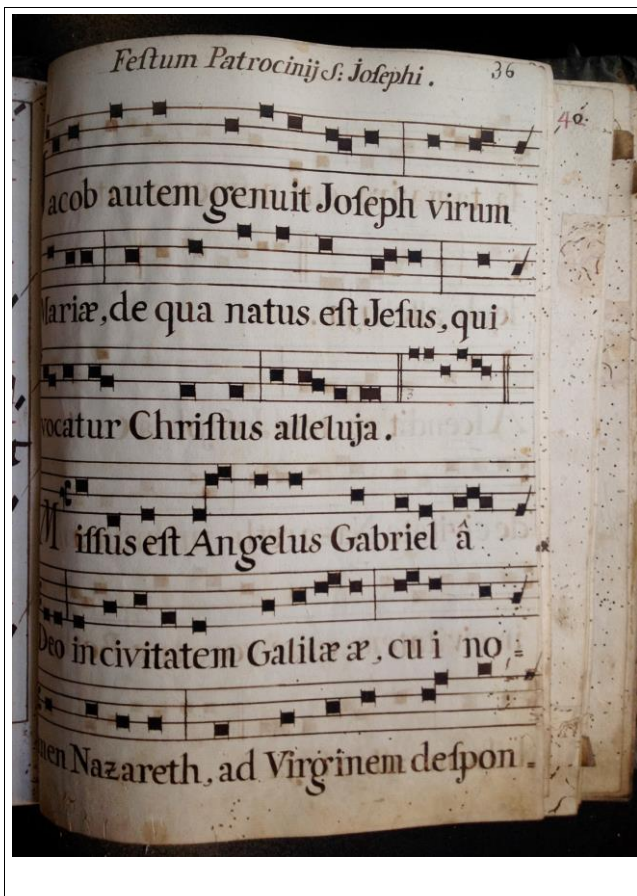 Feſtum Patrocinij S: Joſephi. 36
40.
acob autem genuit Joſeph virum
Mariæ, de qua natus eſt Jeſus, qui
vocatur Chriſtus alleluja.
Miſſus eſt Angelus Gabriel â
Deo in civitatem Galilææ, cui no=
men Nazareth, ad Virginem deſpon=